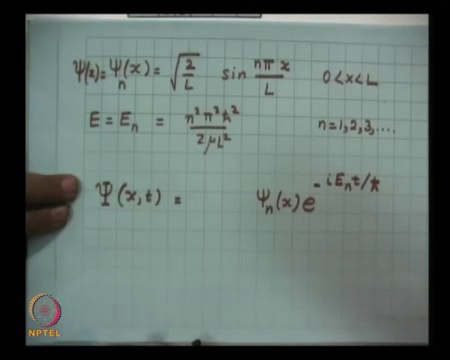 Ψ(x) = Ψn(x) = √(2/L) sin nπx/L 0 < x < L
E = En = n²π²ħ²/2μL² n = 1, 2, 3, ....
Ψ(x, t) = Ψn(x) e^(-iEnt/ħ)
NPTEL